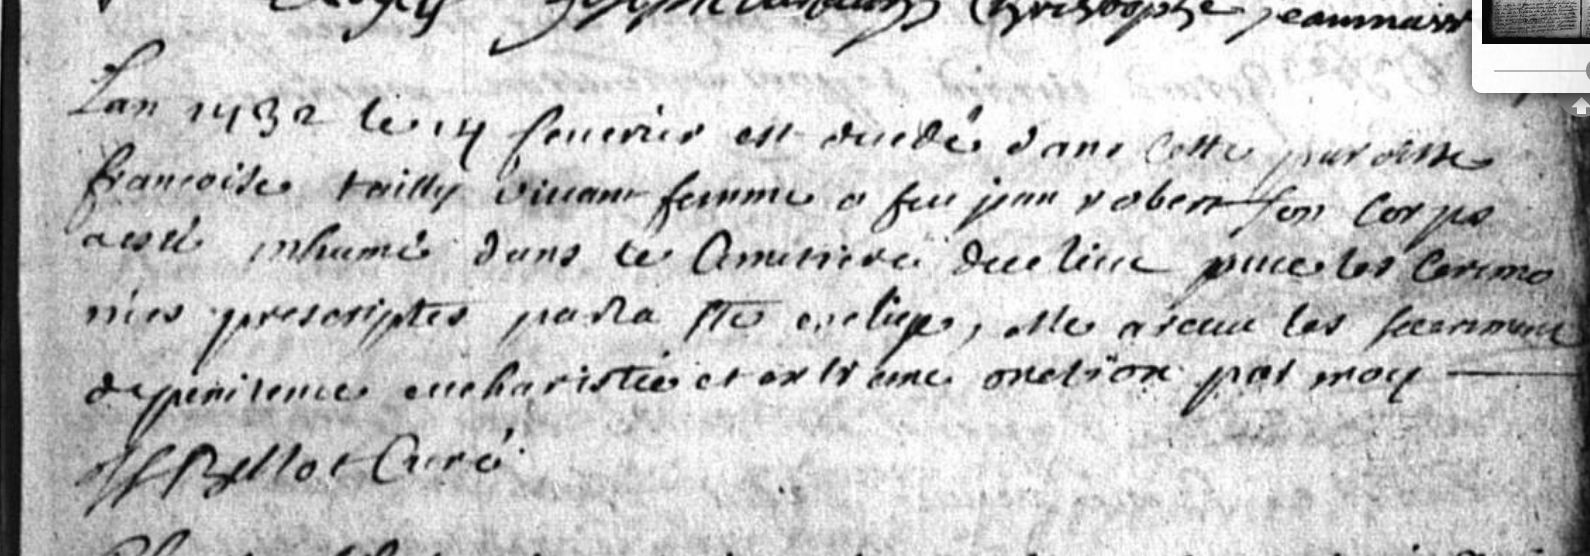 Christophe jeanmaire
Lan 1732 le 14 feuvrier est decedé dans cette paroisse
francoise tailly vivant femme a feu jean robert son corps
a esté inhumé dans le Cimetiere du lieu avec les Ceremo
nies prescriptes par la ste eglise, elle a receu les sacrements
de penitence eucharistie et extreme onction par moy
Bellot Curé